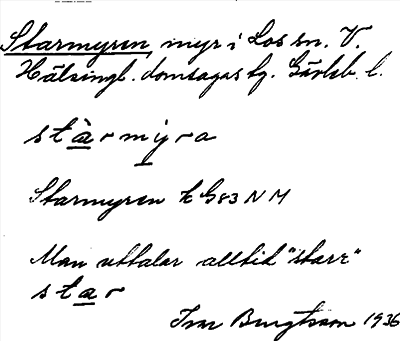 Starmyren, myr i Los sn. V.
Hälsingl. domsagas tg. Gävleb. l.
stàrmýra
Starmyren k G83 NM
Man uttalar alltid "starr"
star
Ivar Bengtsson 1936